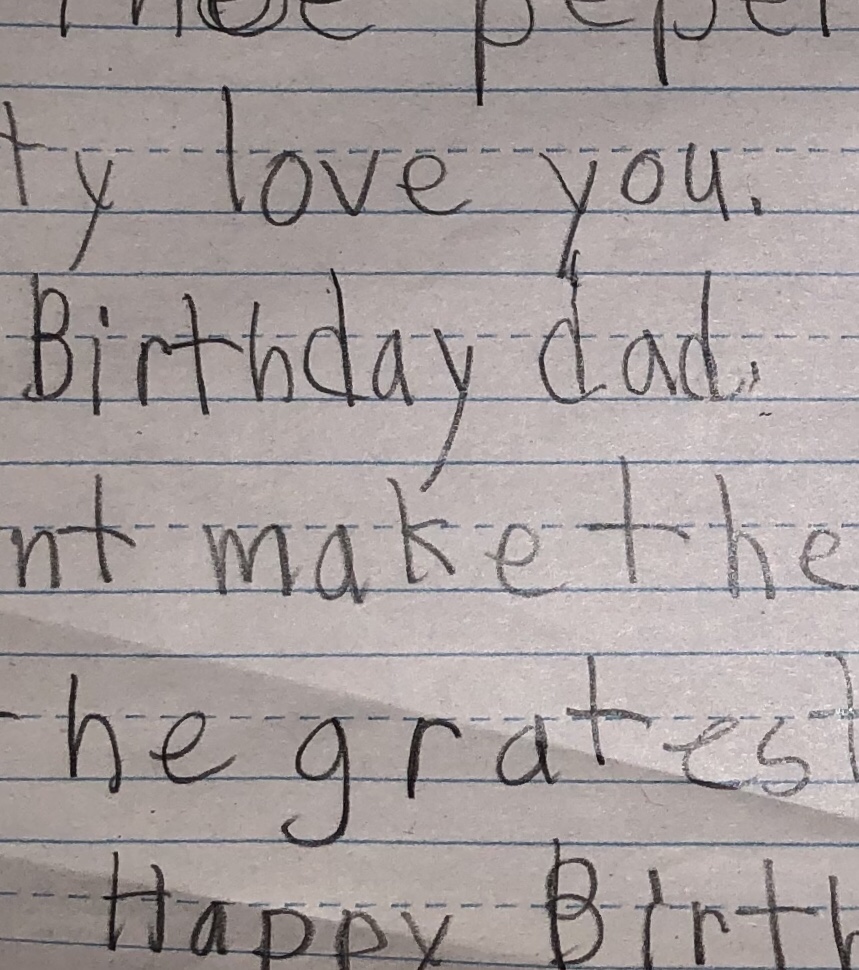 ty love you.
Birthday dad.
nt make the
he gratest
Happy Birth